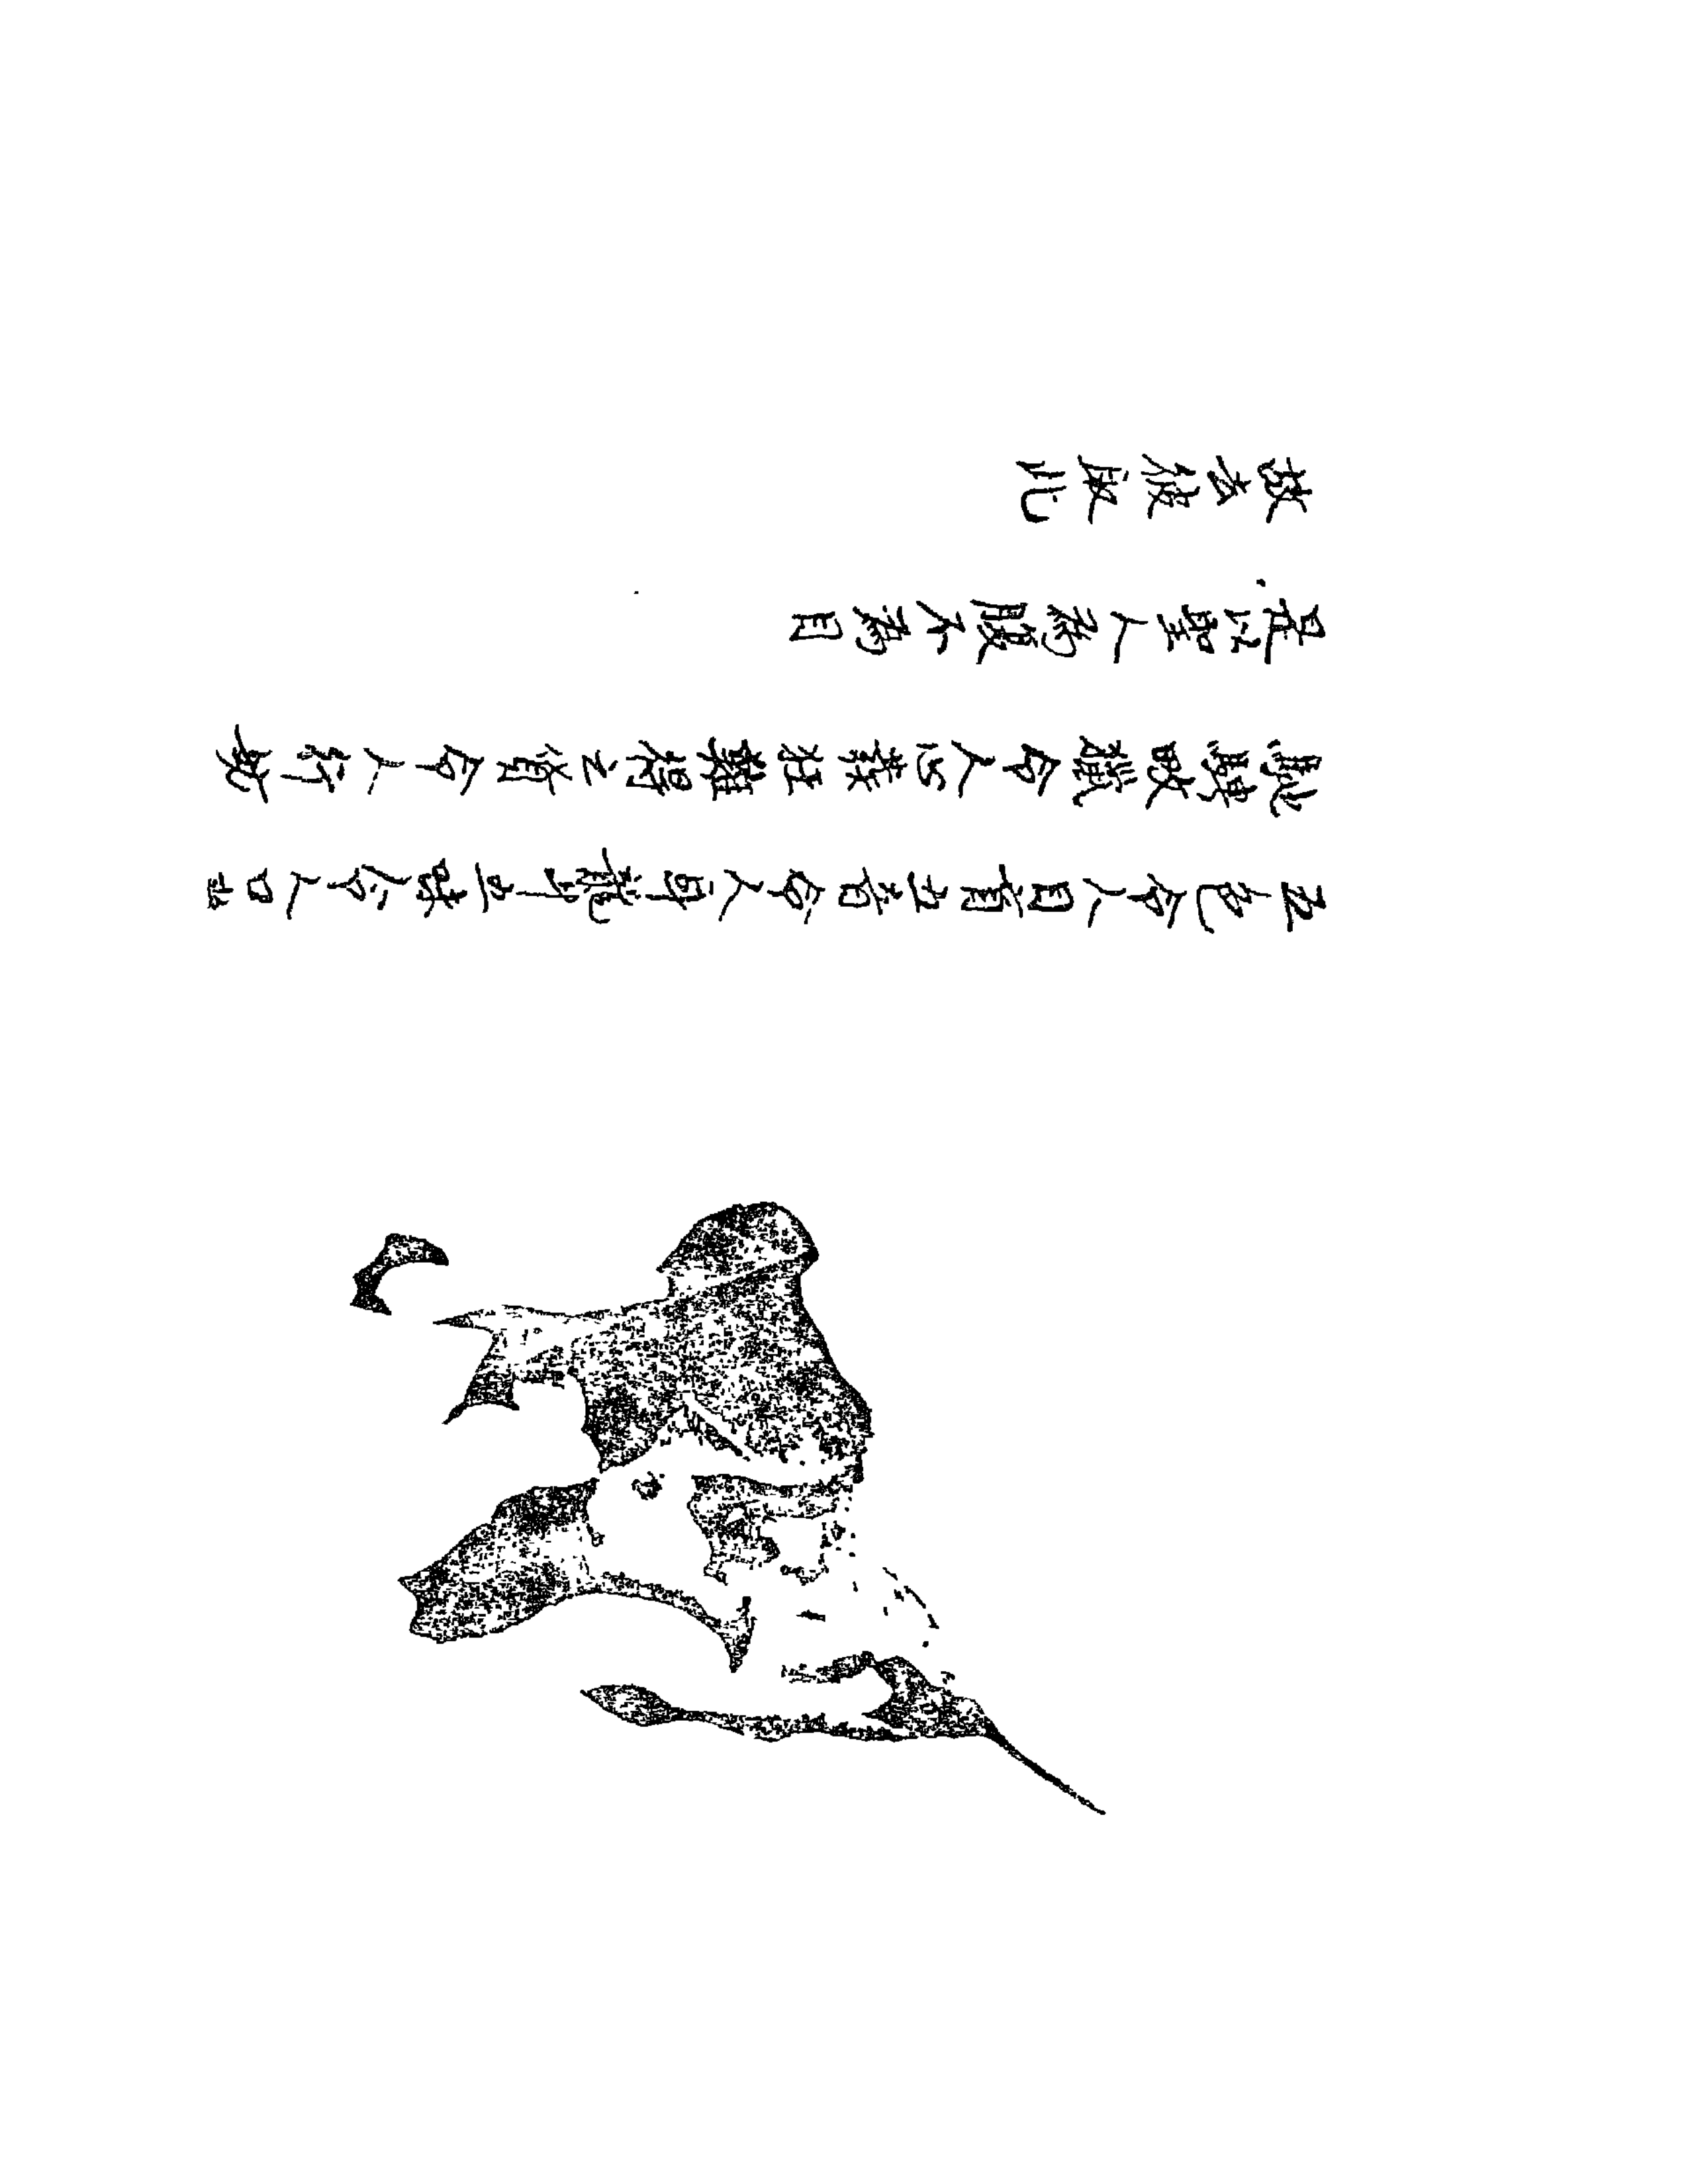 五色令人目盲五音令人耳聾五味令人口
馳騁畋獵令人心發狂難得之貨令人行妨
是以聖人為腹不為目
故去彼取此